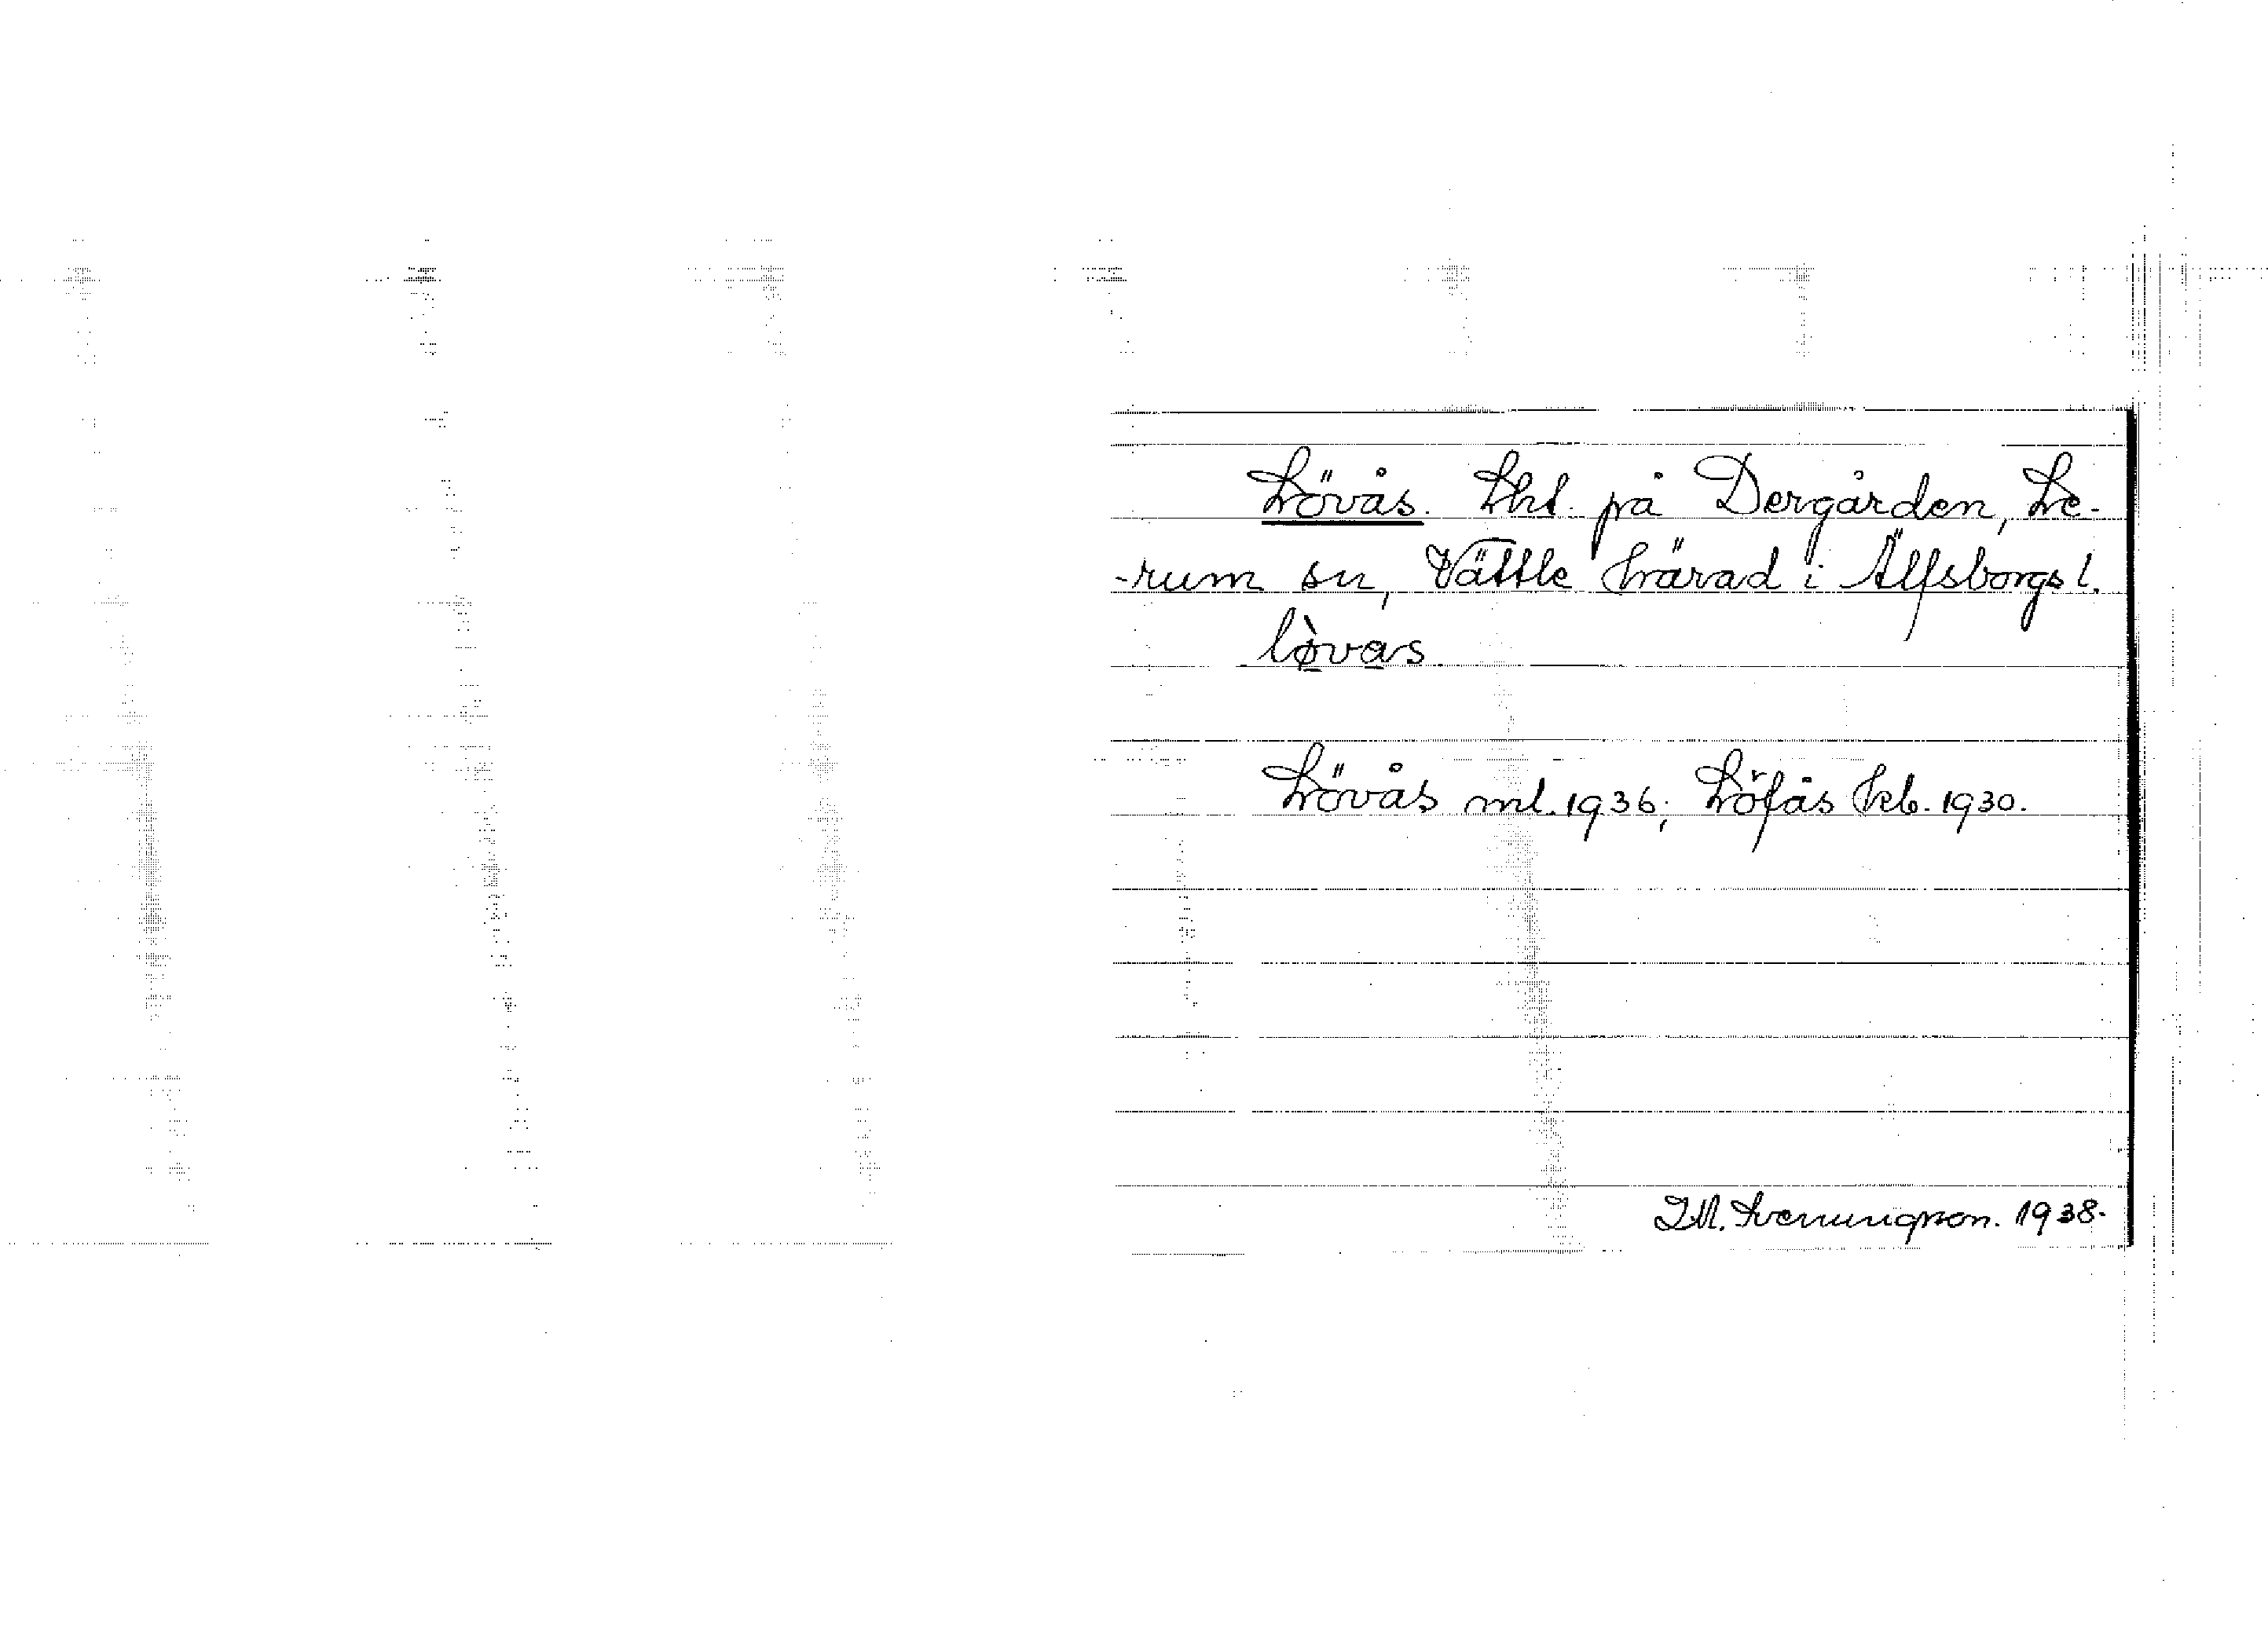 Lövås. Lht. på Dergården, Le-
-rum sn, Vättle härad i Älfsborgs l.
lø̀vas
Lövås ml. 1936; Löfås kb. 1930.
I.M. Svenungsson. 1938.